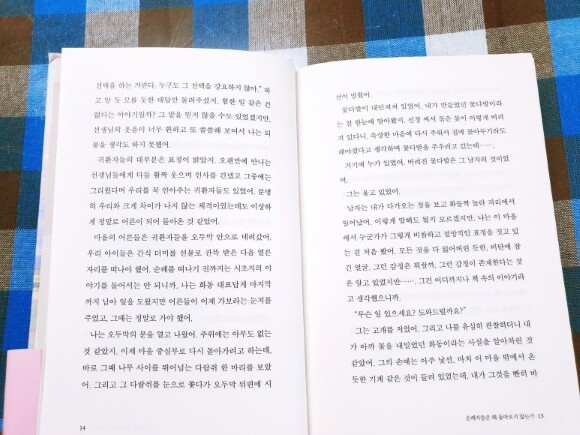 선택을 하는 거란다. 누구도 그 선택을 강요하지 않아.” 뭐
고 알 듯 모를 듯한 대답만 돌려주셨지. 험한 일 같은 건
없다는 이야기일까? 그 말을 믿지 않을 수도 있었겠지만,
선생님의 웃음이 너무 환하고 또 쓸쓸해 보여서 나는 되
물을 생각도 하지 못했어.
귀환자들의 대부분은 표정이 밝았지. 오랜만에 만나는
선생님들에게 다들 활짝 웃으며 인사를 건넸고 그중에는
그리웠다며 우리를 꼭 안아주는 귀환자들도 있었어. 분명
히 우리와 크게 차이가 나지 않는 체격이었는데도 이상하
게 정말로 어른이 되어 돌아온 것 같았어.
마을의 어른들은 귀환자들을 오두막 안으로 데려갔어.
우리 아이들은 간식 더미를 선물로 잔뜩 받은 다음 얼른
자리를 떠나야 했어. 순례를 떠나기 전까지는 시초지의 이
야기를 들어서는 안 되니까. 나는 화동 대표답게 마지막
까지 남아 일을 도왔지만 어른들이 이제 가보라는 눈치를
주었고, 그때는 정말로 가야 했어.
나는 오두막의 문을 열고 나왔어. 주위에는 아무도 없는
것 같았지. 이제 마을 중심부로 다시 돌아가려고 하는데,
바로 그때 나무 사이를 뛰어넘는 다람쥐 한 마리를 보았
어. 그리고 그 다람쥐를 눈으로 쫓다가 오두막 뒤편에 시
14
선이 멈췄어.
꽃다발이 내던져져 있었어. 내가 만들었던 꽃다발이라
는 걸 한눈에 알아봤지. 신경 써서 묶은 꽃이 이렇게 버려
져 있다니. 속상한 마음에 다시 주워서 집에 꽂아두기라도
해야겠다고 생각하며 꽃다발을 주우려고 했는데…….
거기에 누가 있었어. 버려진 꽃다발은 그 남자의 것이었
어.
그는 울고 있었어.
남자는 내가 다가오는 것을 보고 화들짝 놀라 자리에서
일어났어. 이렇게 말해도 될지 모르겠지만, 나는 이 마을
에서 누군가가 그렇게 비참하고 절망적인 표정을 짓고 있
는 걸 처음 봤어. 모든 것을 다 잃어버린 듯한, 비탄에 잠
긴 얼굴. 그런 감정은 뭐랄까, 그런 감정이 존재한다는 것
은 알고 있었지만……, 그건 어디까지나 책 속의 이야기라
고 생각했으니까.
“무슨 일 있으세요? 도와드릴까요?”
그는 고개를 저었어. 그리고 나를 유심히 관찰하더니 내
가 아까 꽃을 내밀었던 화동이라는 사실을 알아차린 것
같았어. 그의 손에는 아주 낯선, 마치 이 마을 밖에서 온
듯한 기계 같은 것이 들려 있었는데, 내가 그것을 빤히 바
순례자들은 왜 돌아오지 않는가 15